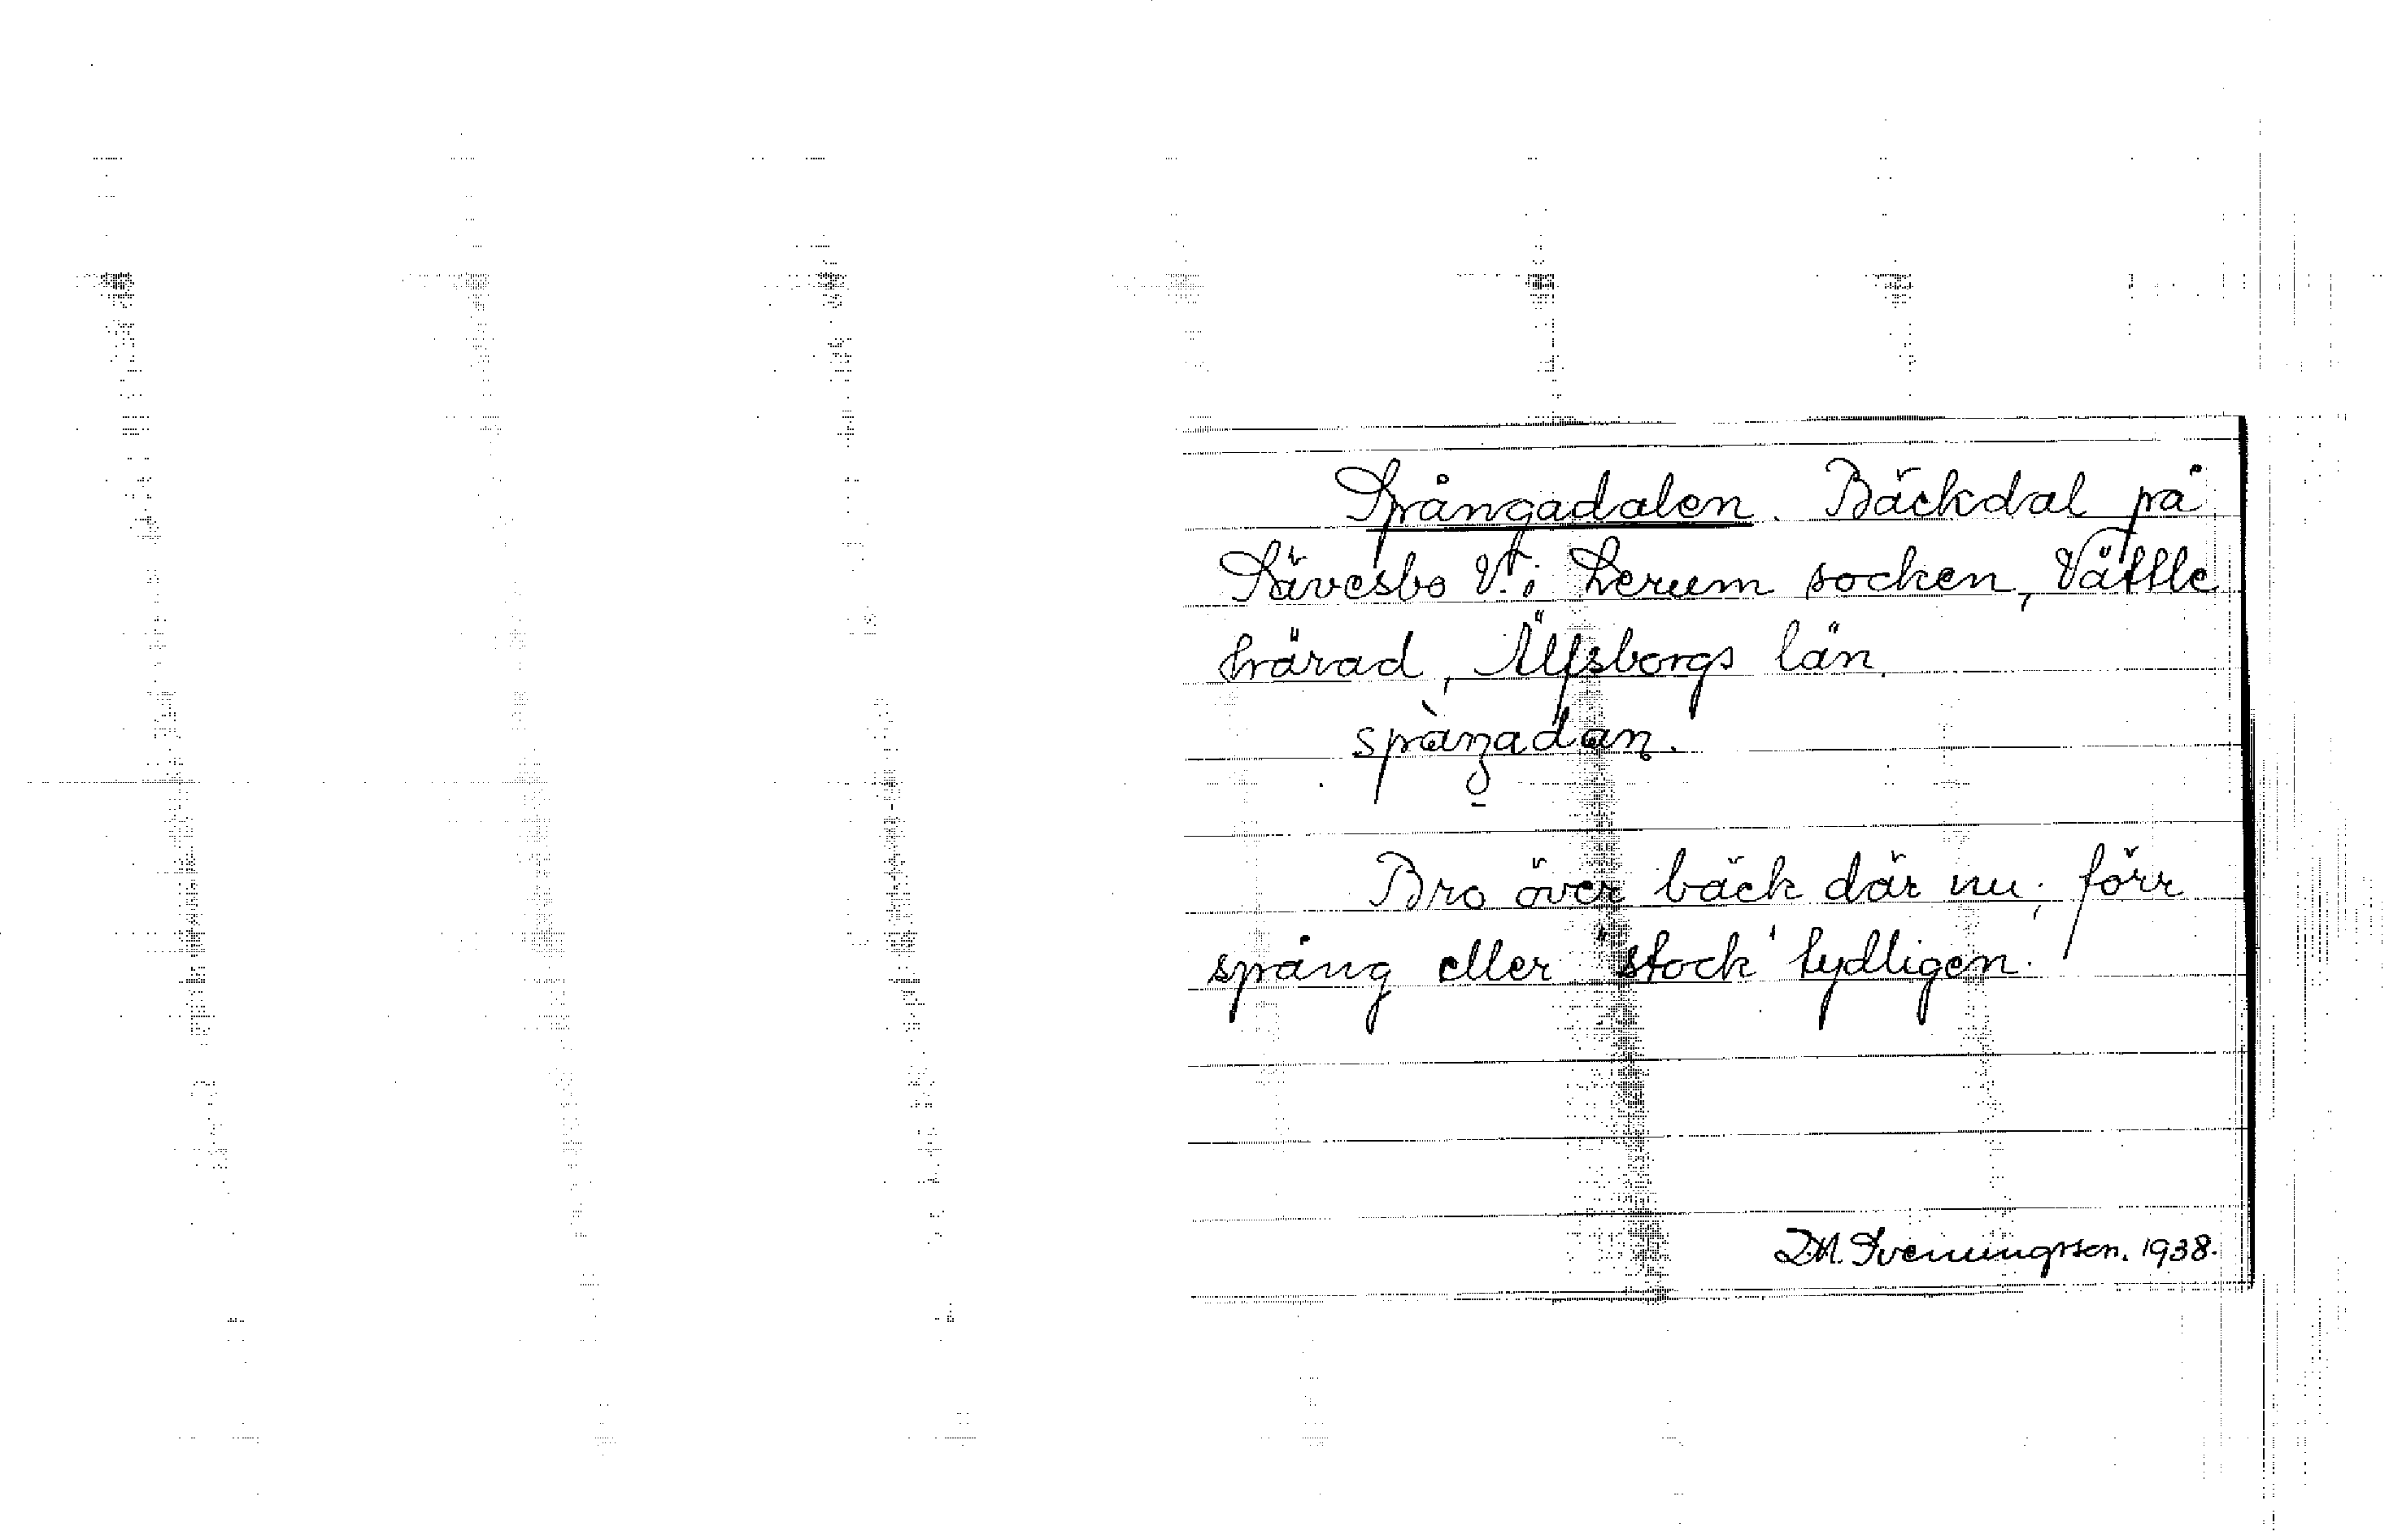 Spångadalen. Bäckdal på
Sävesbo V. i Lerum socken, Vättle
härad, Älfsborgs län.
Bro över bäck där nu; förr
spång eller "stock" tydligen.
D.M. Svenningsson. 1938.